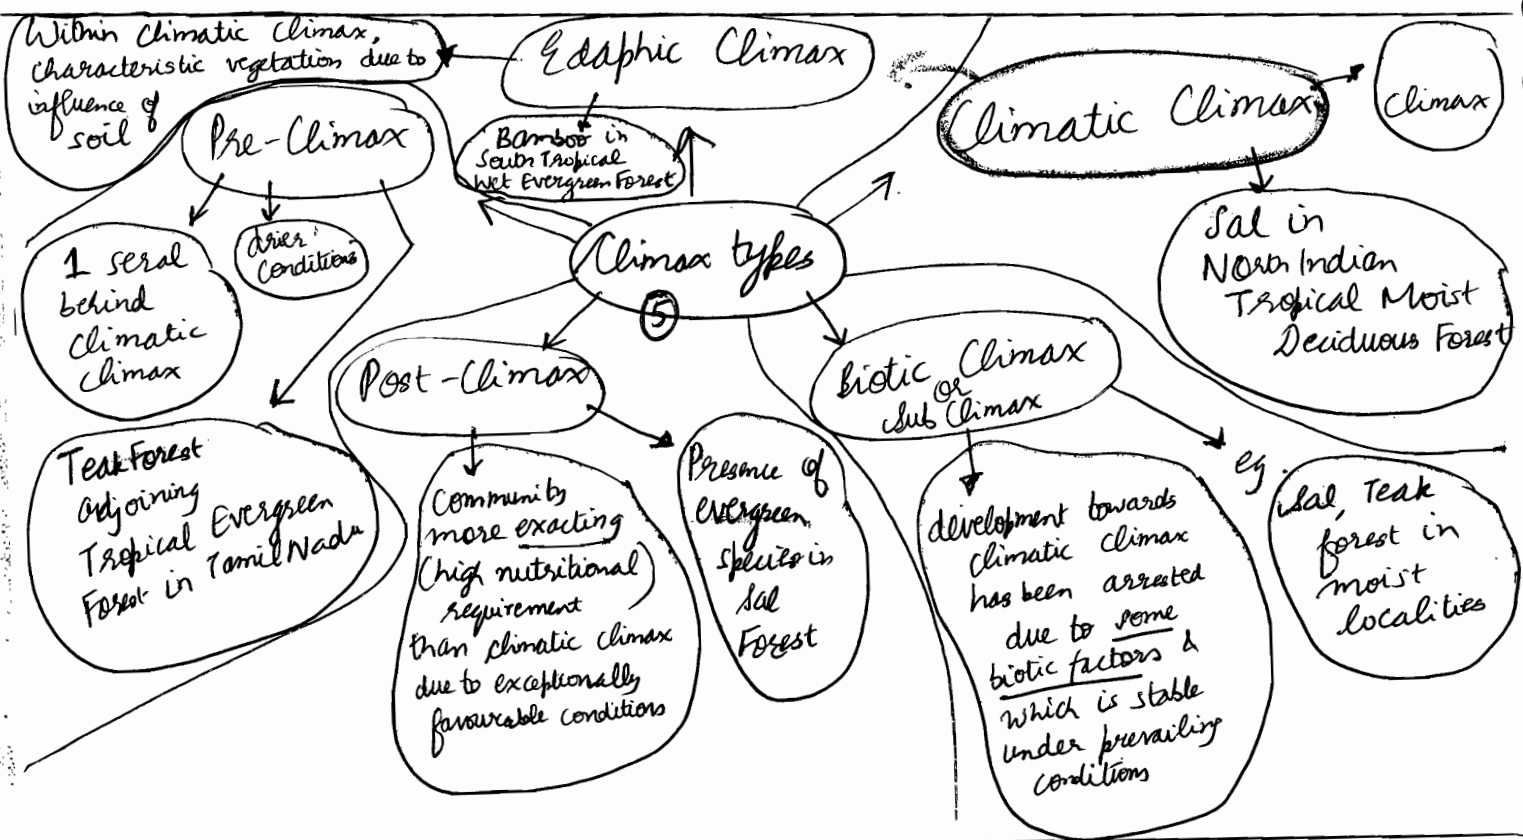 Within Climatic Climax,
characteristic vegetation due to
influence of
soil
Edaphic Climax
Bamboo in
South Tropical
Wet Evergreen Forest
Climatic Climax
Climax
Sal in
North Indian
Tropical Moist
Deciduous Forest
Pre-Climax
1 seral
behind
climatic
climax
drier
conditions
Teak Forest
adjoining
Tropical Evergreen
Forest in Tamil Nadu
Climax types
5
Post-Climax
Community
more exacting
(high nutritional)
requirement
than climatic climax
due to exceptionally
favourable conditions
Presence of
evergreen
species in
Sal
Forest
Biotic Climax
or
Sub Climax
development towards
climatic climax
has been arrested
due to some
biotic factors &
which is stable
under prevailing
conditions
eg.
Sal, Teak
forest in
moist
localities